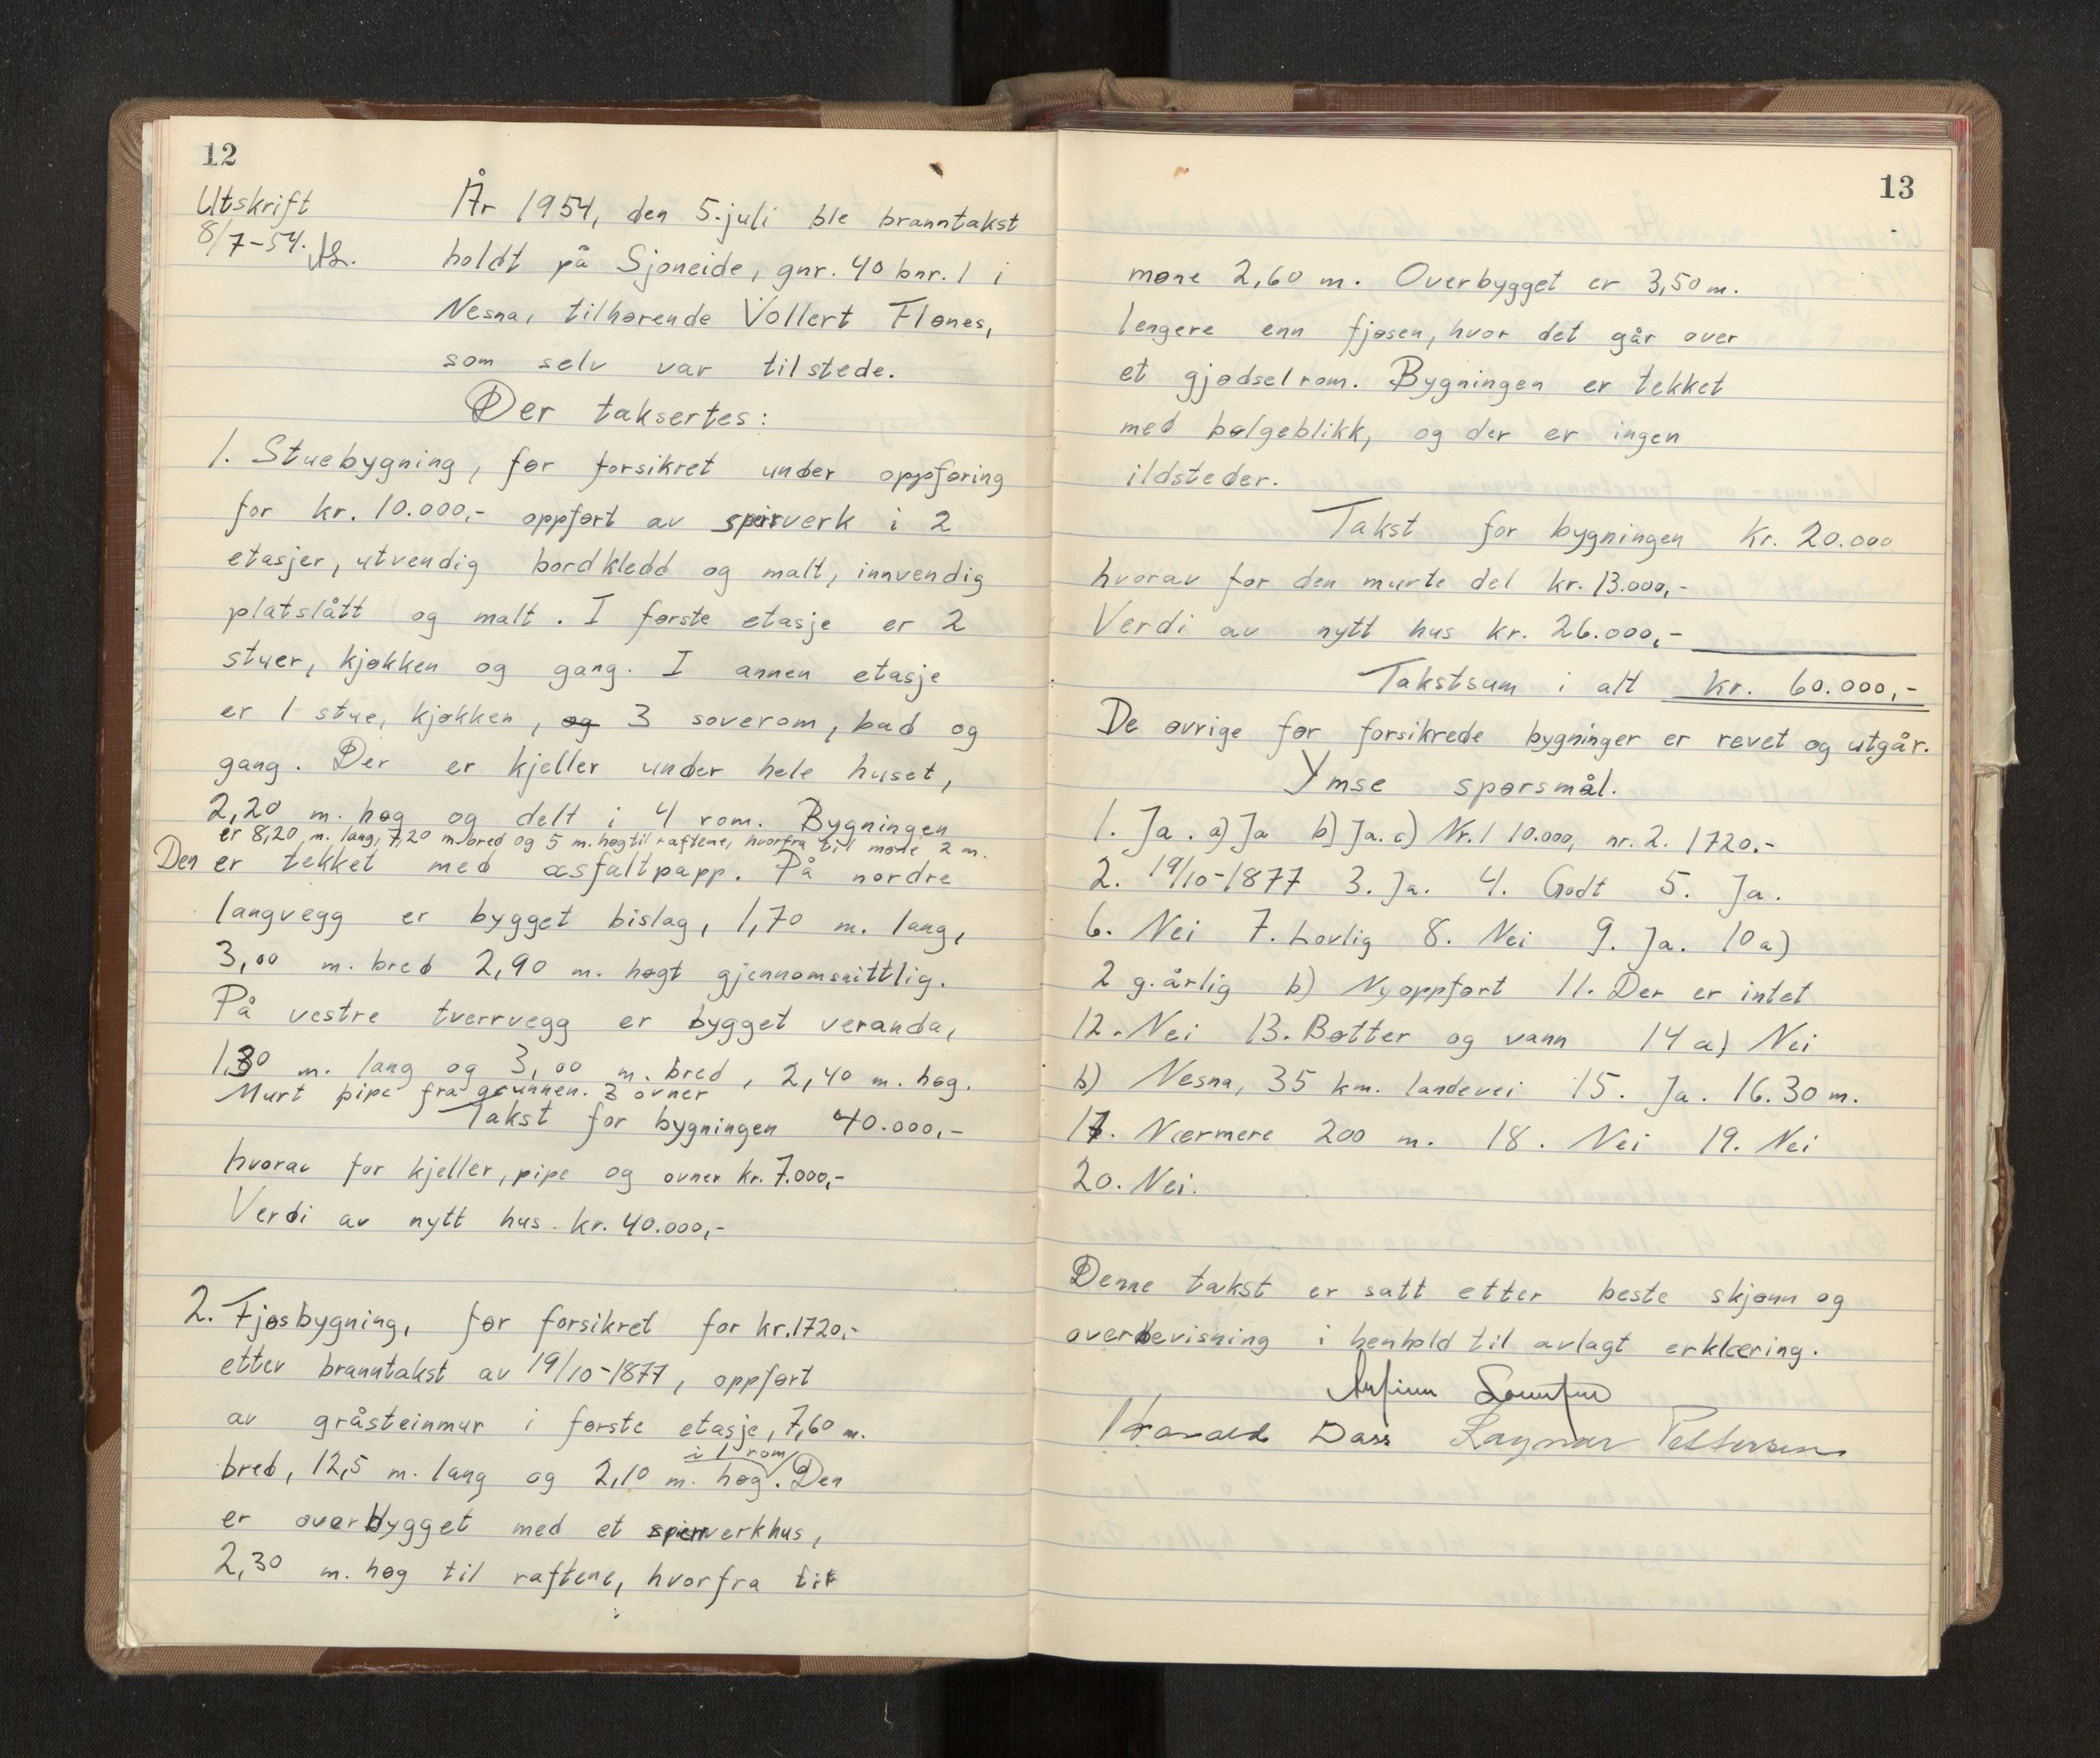 12
Utskrift
8/7-54.
År 1954, den 5. juli ble branntakst
holdt på Sjoneide, gnr. 40 bnr. 1 i
Nesna, tilhørende Vollert Flønes,
som selv var tilstede.
Der taksertes:
1. Stuebygning, før forsikret under oppføring
for kr. 10.000,- oppført av spirverk i 2
etasjer, utvendig bordkledd og malt, innvendig
platslått og malt. I første etasje er 2
stuer, kjøkken og gang. I annen etasje
er 1 stue, kjøkken, og 3 soverom, bad og
gang. Der er kjeller under hele huset,
2,20 m. høg og delt i 4 rom. Bygningen
er 8,20 m. lang, 7,20 m. bred og 5 m. høg til raftene, hvorfra til møne 2 m.
Den er tekket med asfaltpapp. På nordre
langvegg er bygget bislag, 1,70 m. lang,
3,00 m. bred 2,90 m. høgt gjennomsnittlig.
På vestre tverrvegg er bygget veranda,
1,30 m. lang og 3,00 m. bred, 2,40 m. høg.
Murt pipe fra grunnen. 3 ovner
Takst for bygningen 40.000,-
hvorav for kjeller, pipe og ovner kr. 7.000,-
Verdi av nytt hus kr. 40.000,-
2. Fjøsbygning, før forsikret for kr. 1720,-
etter branntakst av 19/10-1877, oppført
av gråsteinmur i første etasje, 7,60 m.
i 1 rom
bred, 12,5 m. lang og 2,10 m. høg. Den
er overbygget med et spirrverkhus,
2,30 m. høg til raftene, hvorfra til
13
møne 2,60 m. Overbygget er 3,50 m.
lengere enn fjøsen, hvor det går over
et gjødselrom. Bygningen er tekket
med bølgeblikk, og der er ingen
ildsteder.
Takst for bygningen kr. 20.000
hvorav for den murte del kr. 13.000,-
Verdi av nytt hus kr. 26.000,-
Takstsum i alt kr. 60.000,-
De øvrige før forsikrede bygninger er revet og utgår.
Ymse spørsmål.
1. Ja. a) Ja b) Ja. c) Nr. 1 10.000, nr. 2. 1720.-
2. 19/10-1877 3. Ja. 4. Godt 5. Ja.
6. Nei 7. Lovlig 8. Nei 9. Ja. 10 a)
2 g. årlig b) Nyoppført 11. Der er intet
12. Nei 13. Bøtter og vann 14 a) Nei
b) Nesna, 35 km. landevei 15. Ja. 16. 30 m.
17. Nærmere 200 m. 18. Nei 19. Nei
20. Nei.
Denne takst er satt etter beste skjønn og
overbevisning i henhold til avlagt erklæring.
Harald Dass Ragnar Pettersen